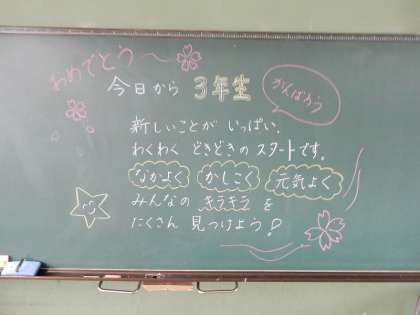 おめでとう～
今日から 3年生
がんばろう
新しいことが いっぱい。
わくわく どきどきの スタートです。
なかよく かしこく 元気よく
みんなの キラキラ を
たくさん 見つけよう！